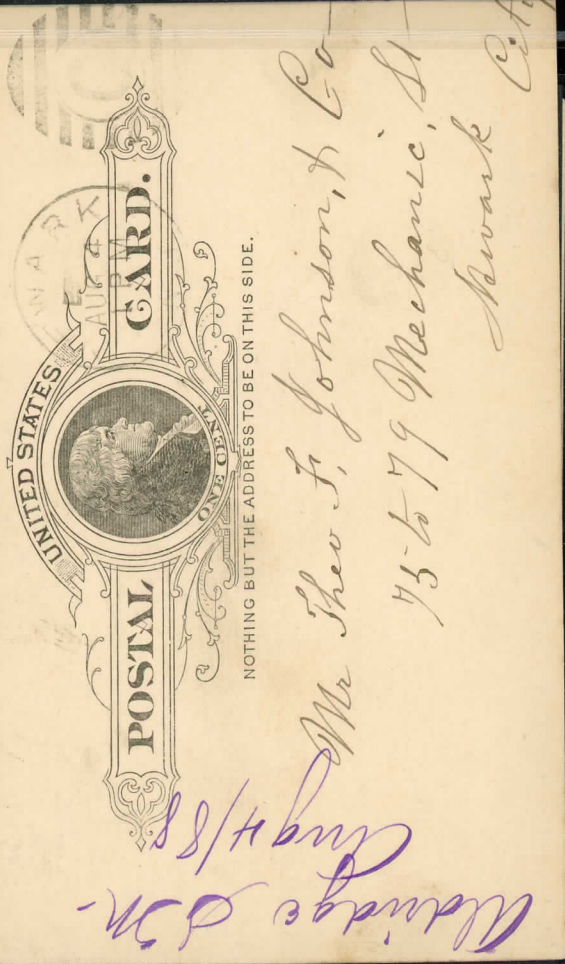 UNITED STATES
POSTAL CARD.
ONE CENT
NOTHING BUT THE ADDRESS TO BE ON THIS SIDE.
WARK
AUG 4
PM
Mr Theo F. Johnson, & Co
75 to 79 Mechanic, St
Newark City
Aldridge S M.
Aug 4/88